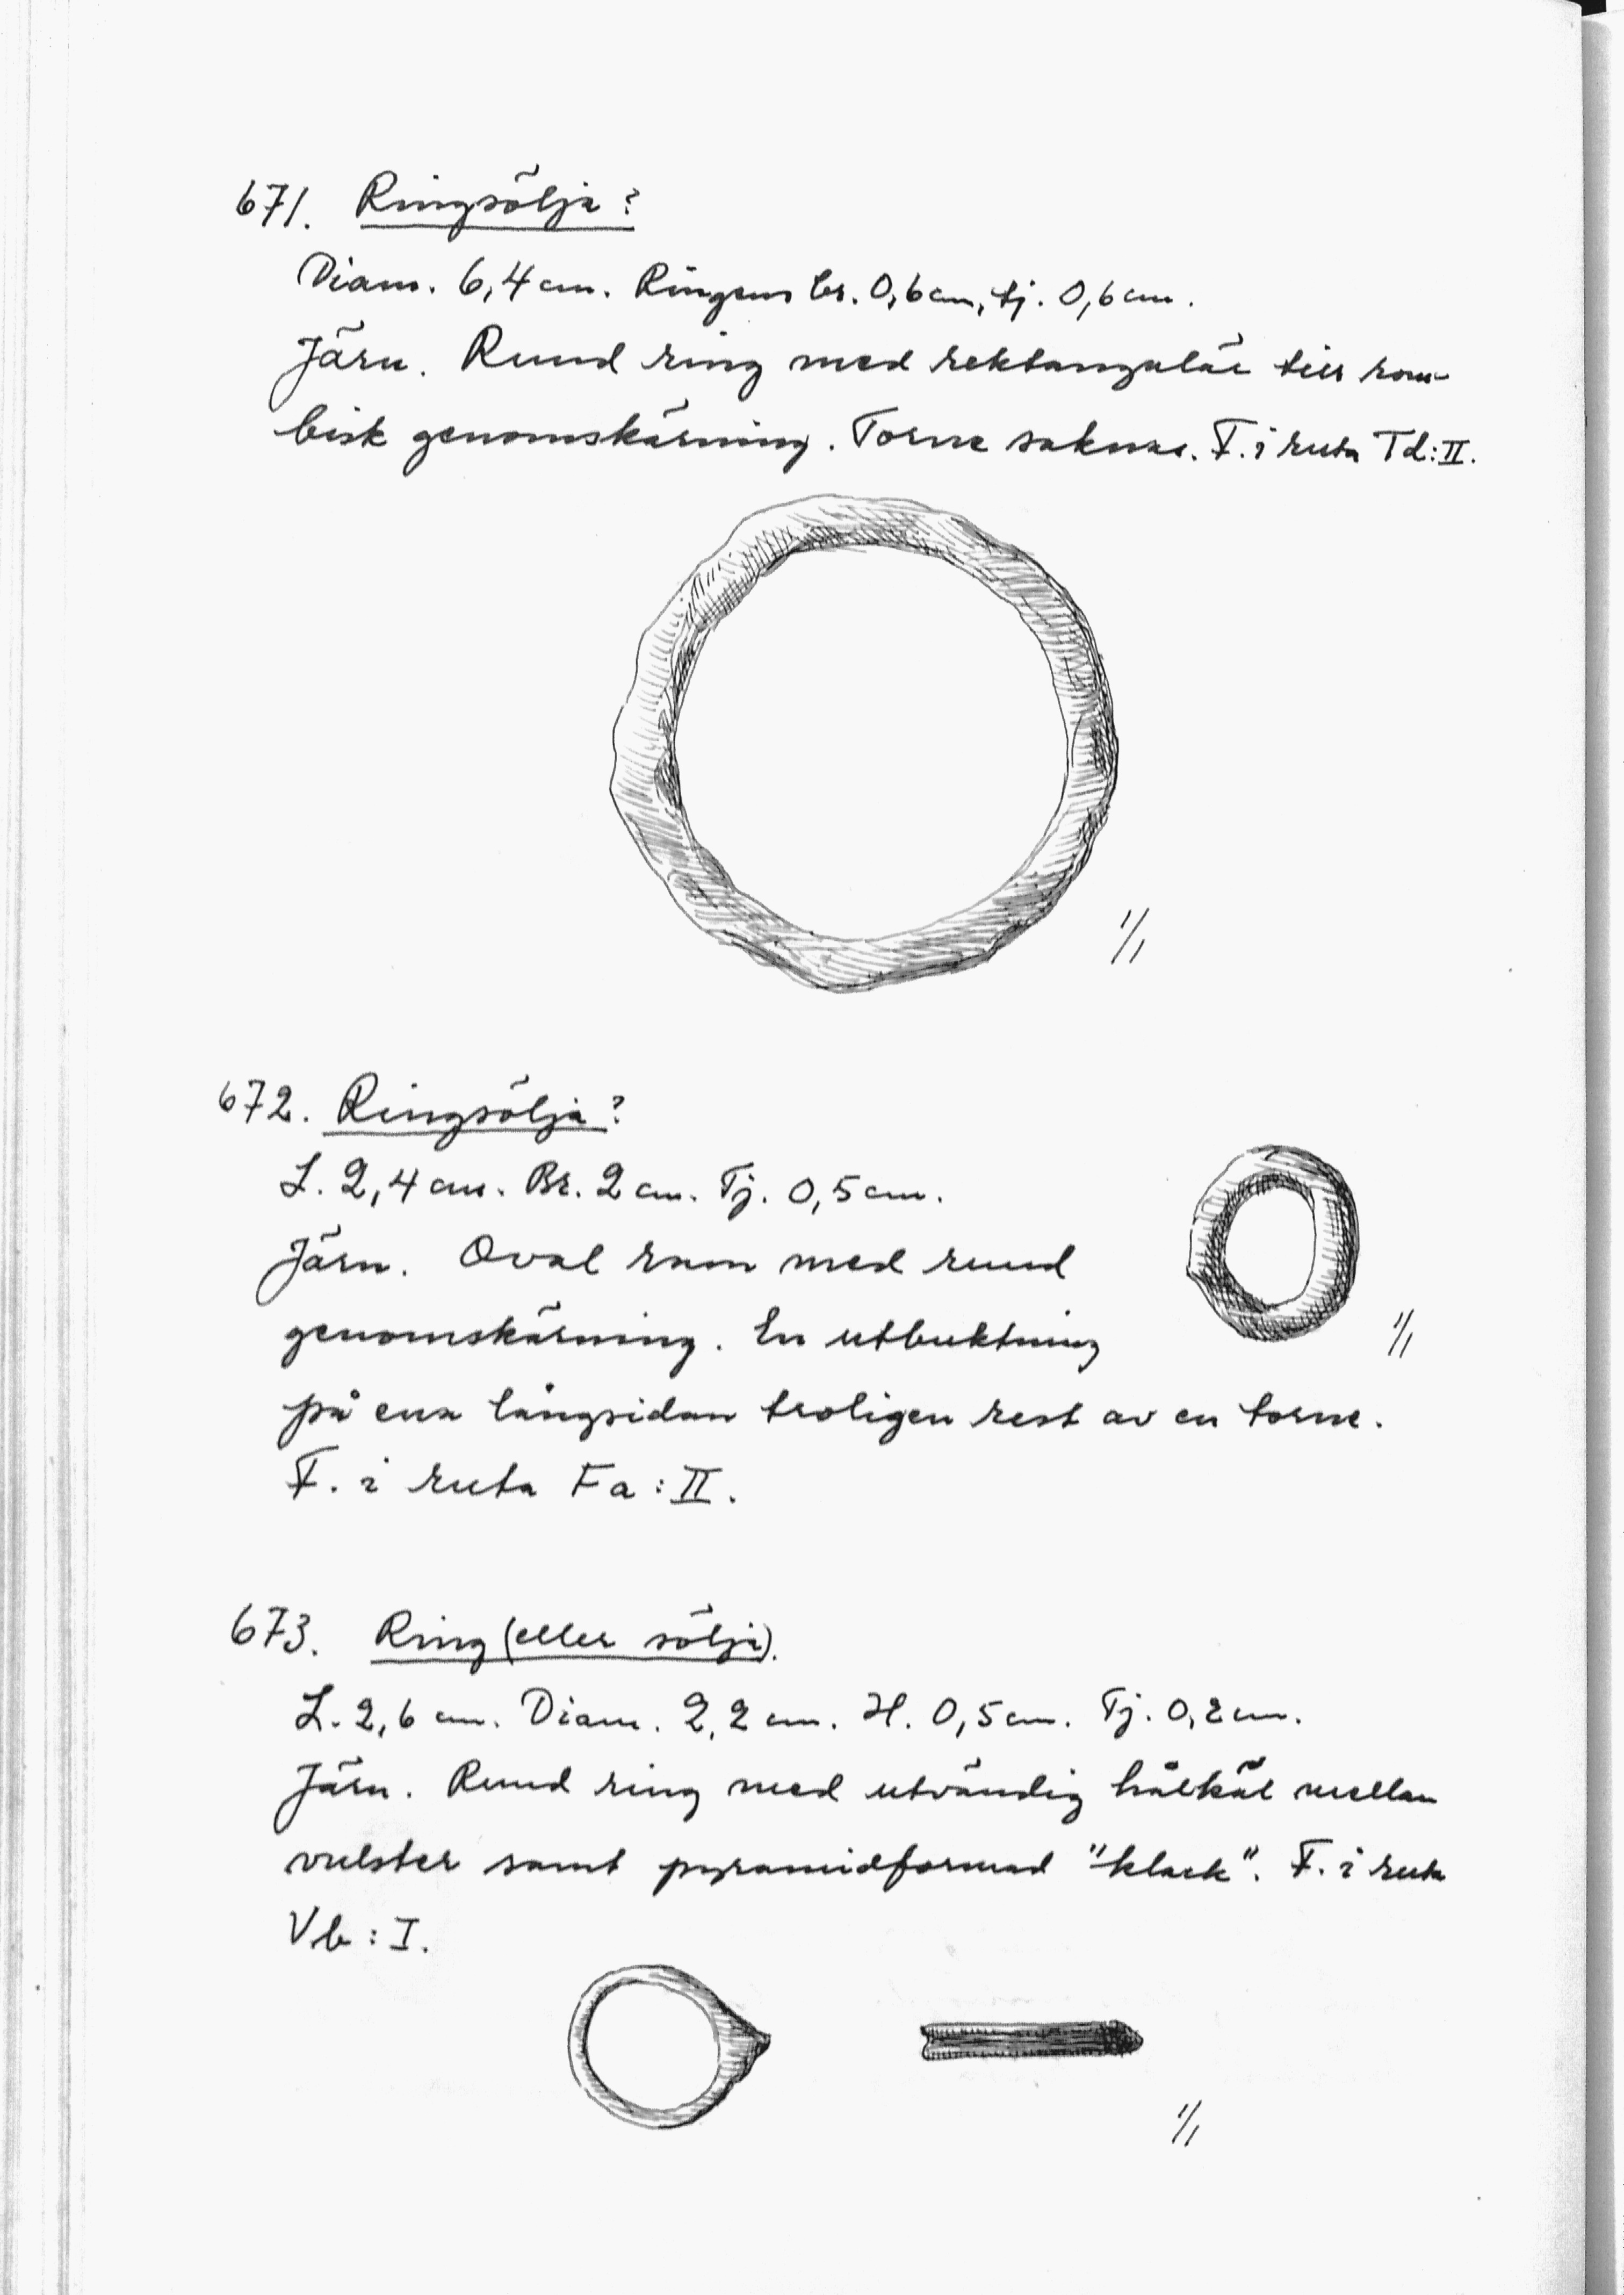 671. Ringsölja?
Diam. 6,4 cm. Ringens br. 0,6 cm, tj. 0,6 cm.
Järn. Rund ring med rektangulär till rom-
bisk genomskärning. Torne saknas. F. i ruta Td:II.
1/1
672. Ringsölja?
L. 2,4 cm. Br. 2 cm. Tj. 0,5 cm.
Järn. Oval ram med rund
genomskärning. En utbuktning
1/1
på ena långsidan troligen rest av en torne.
F. i ruta Fa:II.
673. Ring (eller sölja).
L. 2,6 cm. Diam. 2,2 cm. H. 0,5 cm. Tj. 0,2 cm.
Järn. Rund ring med utvändig hålkäl mellan
vulster samt pyramidformad "klack". F. i ruta
Vb:I.
1/1